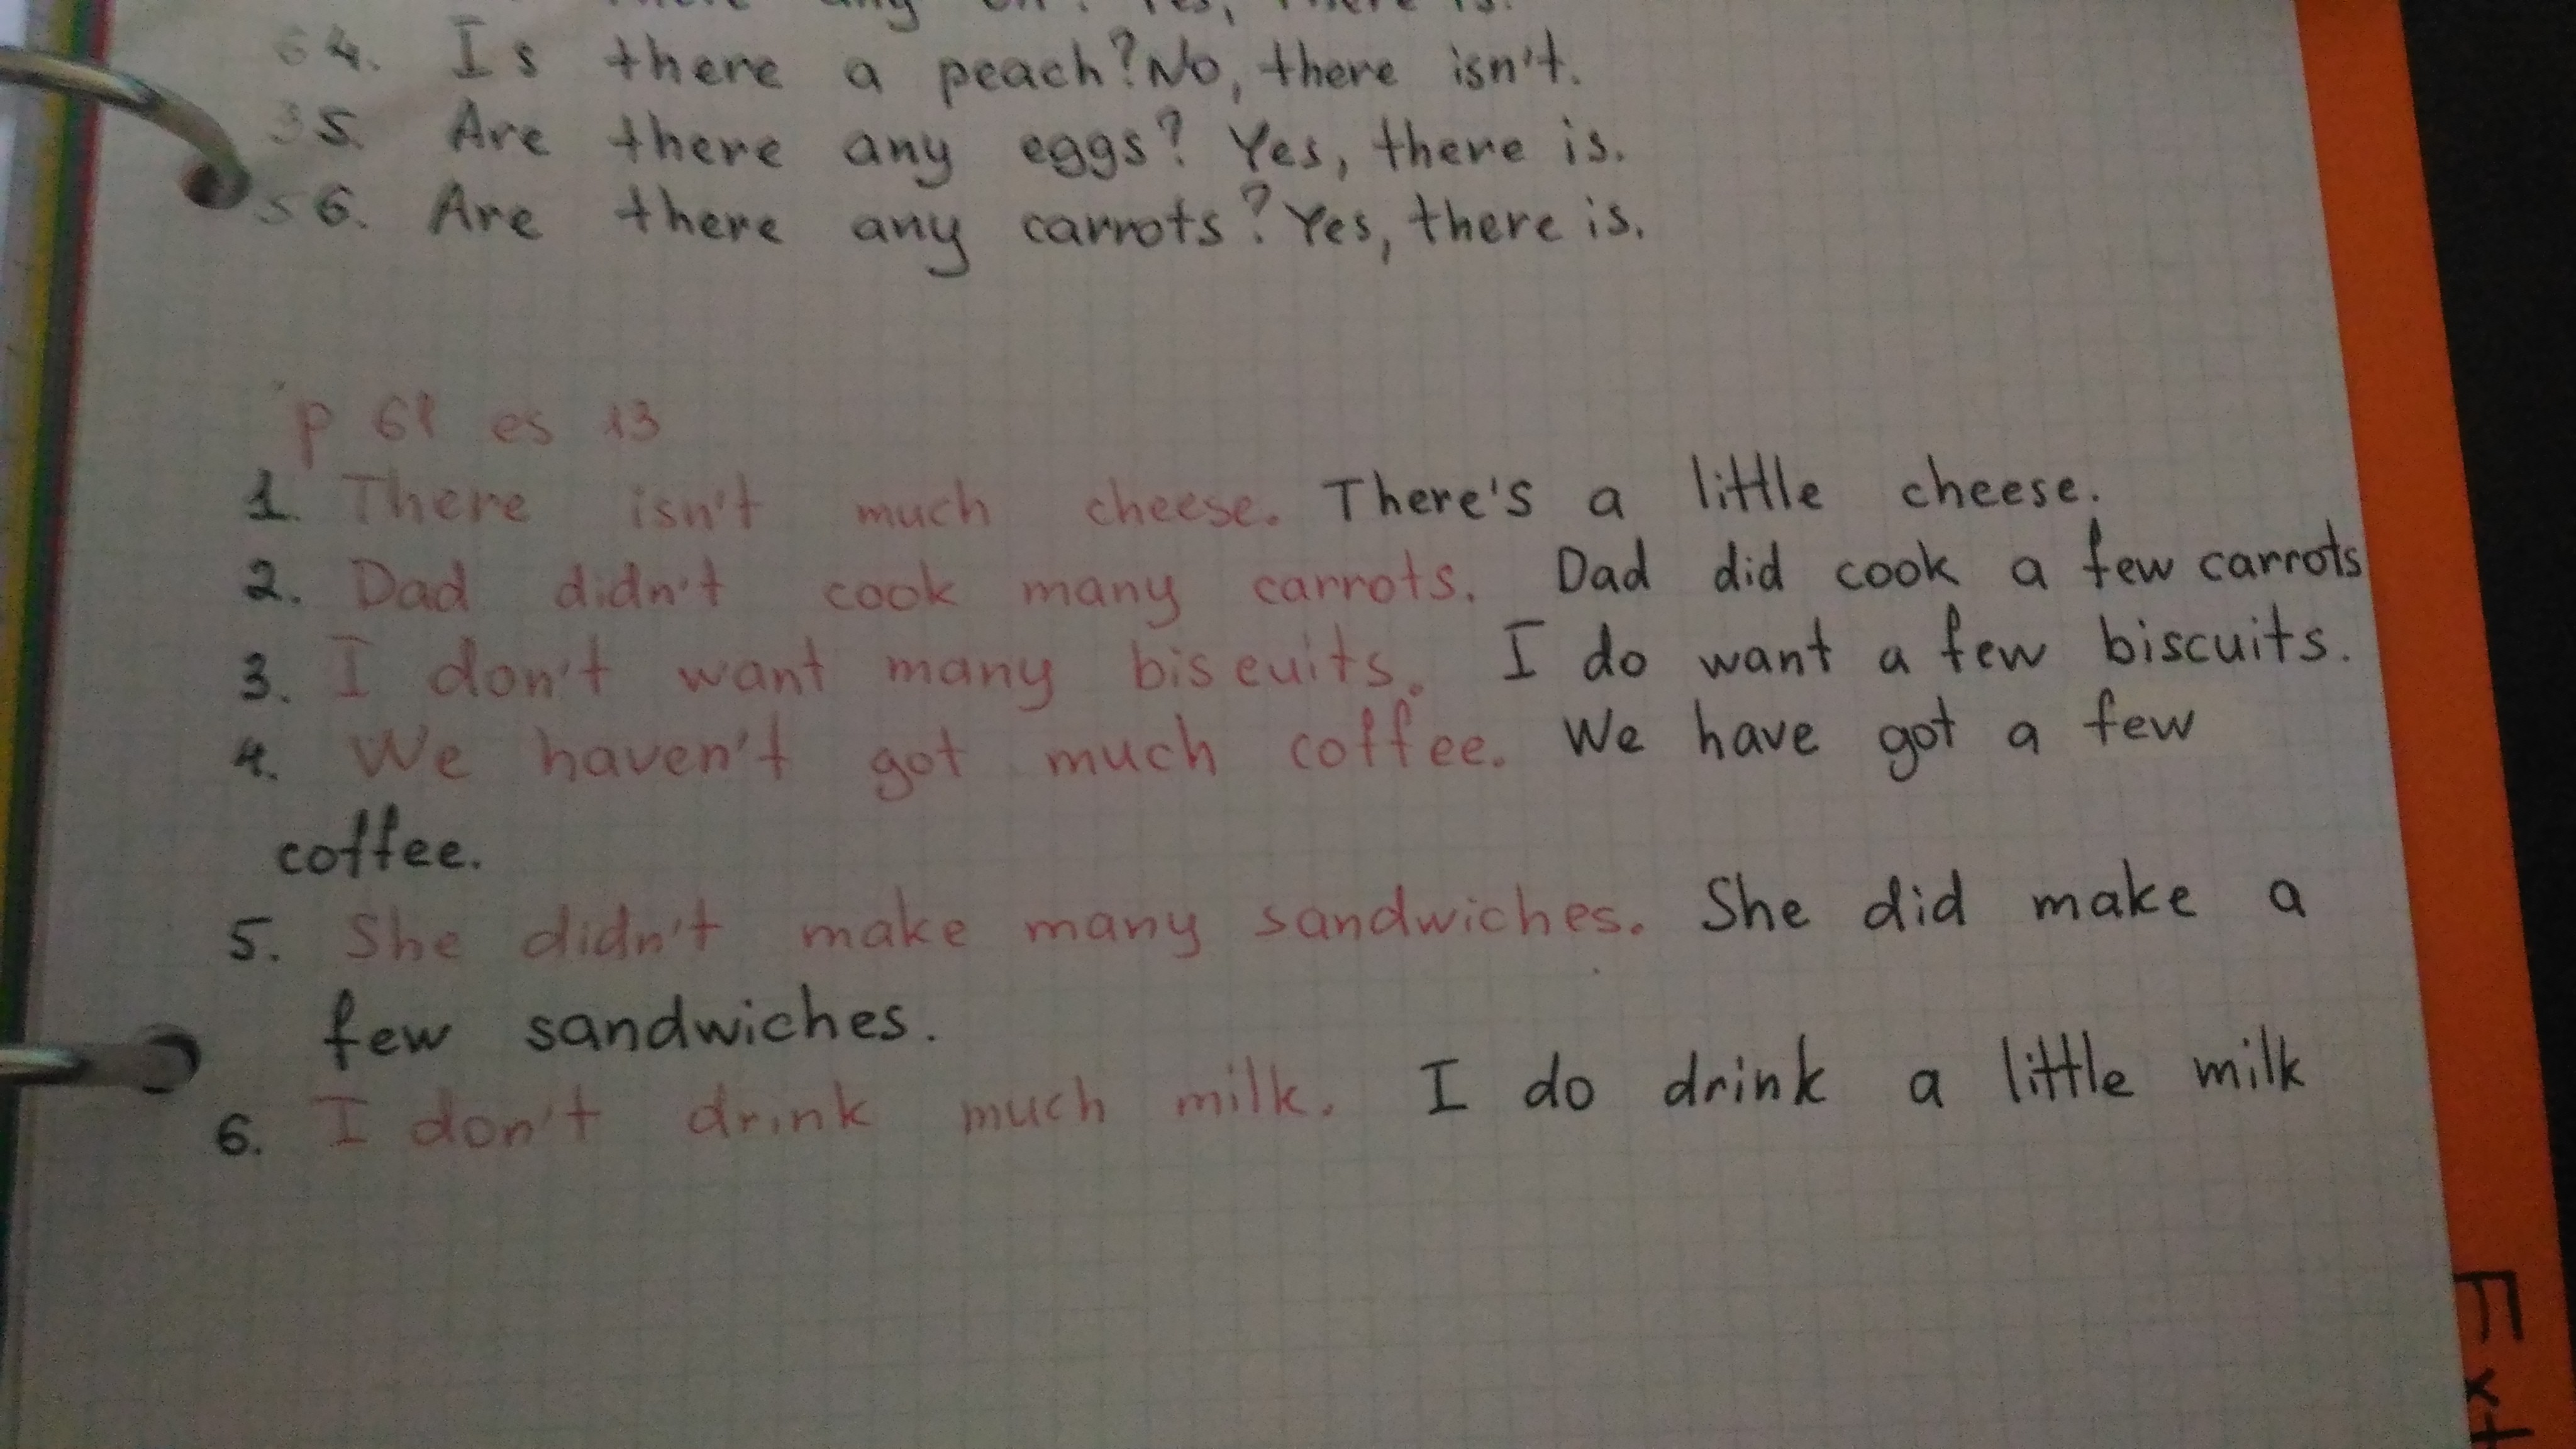 any Yes, there is.
4. Is there a peach? No, there isn't.
5. Are there any eggs? Yes, there is.
6. Are there any carrots? Yes, there is.
p 61 es 13
1. There isn't much cheese. There's a little cheese.
2. Dad didn't cook many carrots. Dad did cook a few carrots
3. I don't want many biscuits. I do want a few biscuits.
4. We haven't got much coffee. We have got a few
coffee.
5. She didn't make many sandwiches. She did make a
few sandwiches.
6. I don't drink much milk. I do drink a little milk